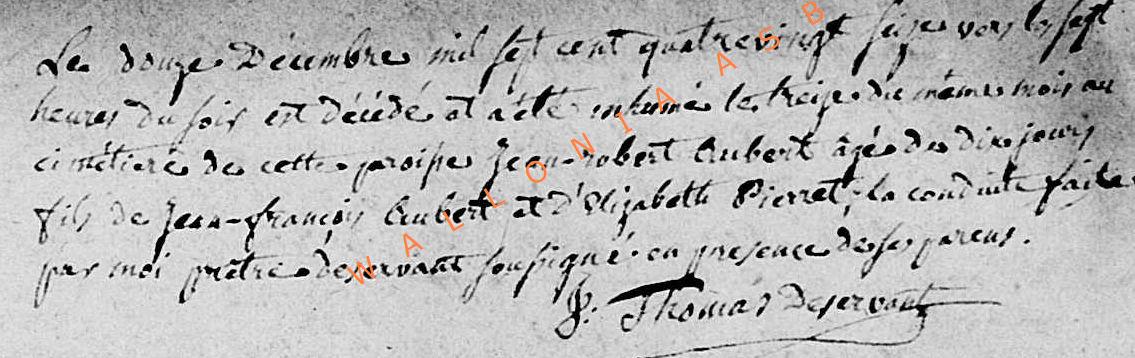 Le douze Décembre mil sept cent quatrevingt seize vers les sept
heures du soir est décédé et a été inhumé le treize du même mois au
cimétiere de cette paroisse Jean-robert Aubert âgé de dix jours
fils de Jean-françois Aubert et d'Elizabeth Pierret, la conduite faite
par moi prêtre déservant soussigné en presence de ses parens.
J. Thomas Deservant
WALLONIA ASB